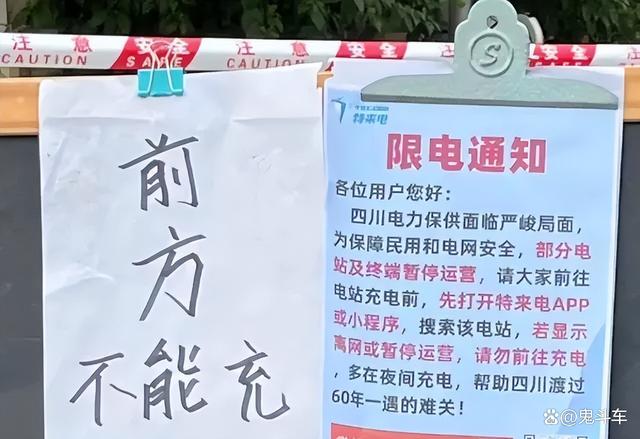 注意 安全 注意 安全 注意
CAUTION SAFE CAUTION CAUTION
前
方
不能充
S
特来电
限电通知
各位用户您好：
四川电力保供面临严峻局面，
为保障民用和电网安全，部分电
站及终端暂停运营，请大家前往
电站充电前，先打开特来电APP
或小程序，搜索该电站，若显示
离网或暂停运营，请勿前往充电
，多在夜间充电，帮助四川渡过
60年一遇的难关！
鬼斗车